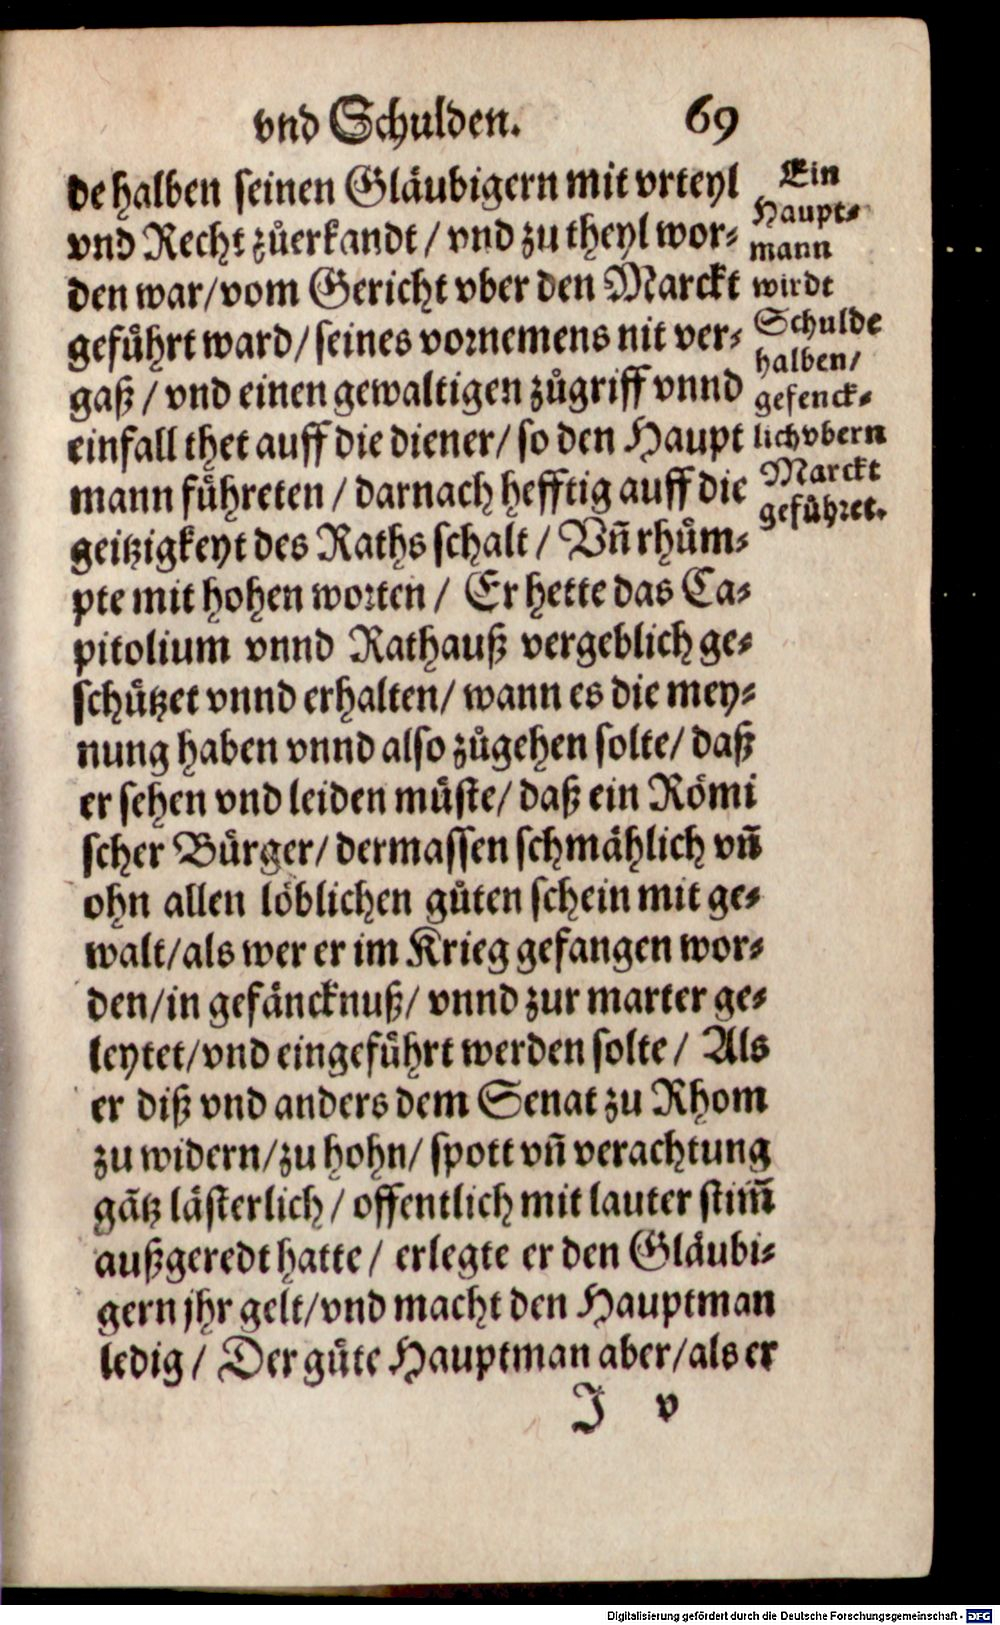 vnd Schulden. 69
de halben seinen Gläubigern mit vrteyl
vnd Recht zůerkandt / vnd zu theyl wor⸗
den war/vom Gericht vber den Marckt
gefůhrt ward/seines vornemens nit ver⸗
gaß / vnd einen gewaltigen zůgriff vnnd
einfall thet auff die diener/ so den Haupt
mann fůhreten / darnach hefftig auff die
geitzigkeyt des Raths schalt / Vñ rhům⸗
pte mit hohen worten / Er hette das Ca⸗
pitolium vnnd Rathauß vergeblich ge⸗
schützet vnnd erhalten/ wann es die mey⸗
nung haben vnnd also zůgehen solte/ daß
er sehen vnd leiden můste/ daß ein Römi
scher Bůrger/ dermassen schmählich vñ
ohn allen löblichen gůten schein mit ge⸗
walt/als wer er im Krieg gefangen wor⸗
den/in gefäncknuß/ vnnd zur marter ge⸗
leytet/vnd eingefůhrt werden solte / Als
er diß vnd anders dem Senat zu Rhom
zu widern/zu hohn/ spott vñ verachtung
gãtz lästerlich / offentlich mit lauter stim̃
außgeredt hatte / erlegte er den Gläubi⸗
gern jhr gelt/vnd macht den Hauptman
ledig / Der gůte Hauptman aber/als er
J v
Ein
Haupt⸗
mann
wirdt
Schulde
halben/
gefenck⸗
lich vbern
Marckt
gefůhret.
Digitalisierung gefördert durch die Deutsche Forschungsgemeinschaft - DFG